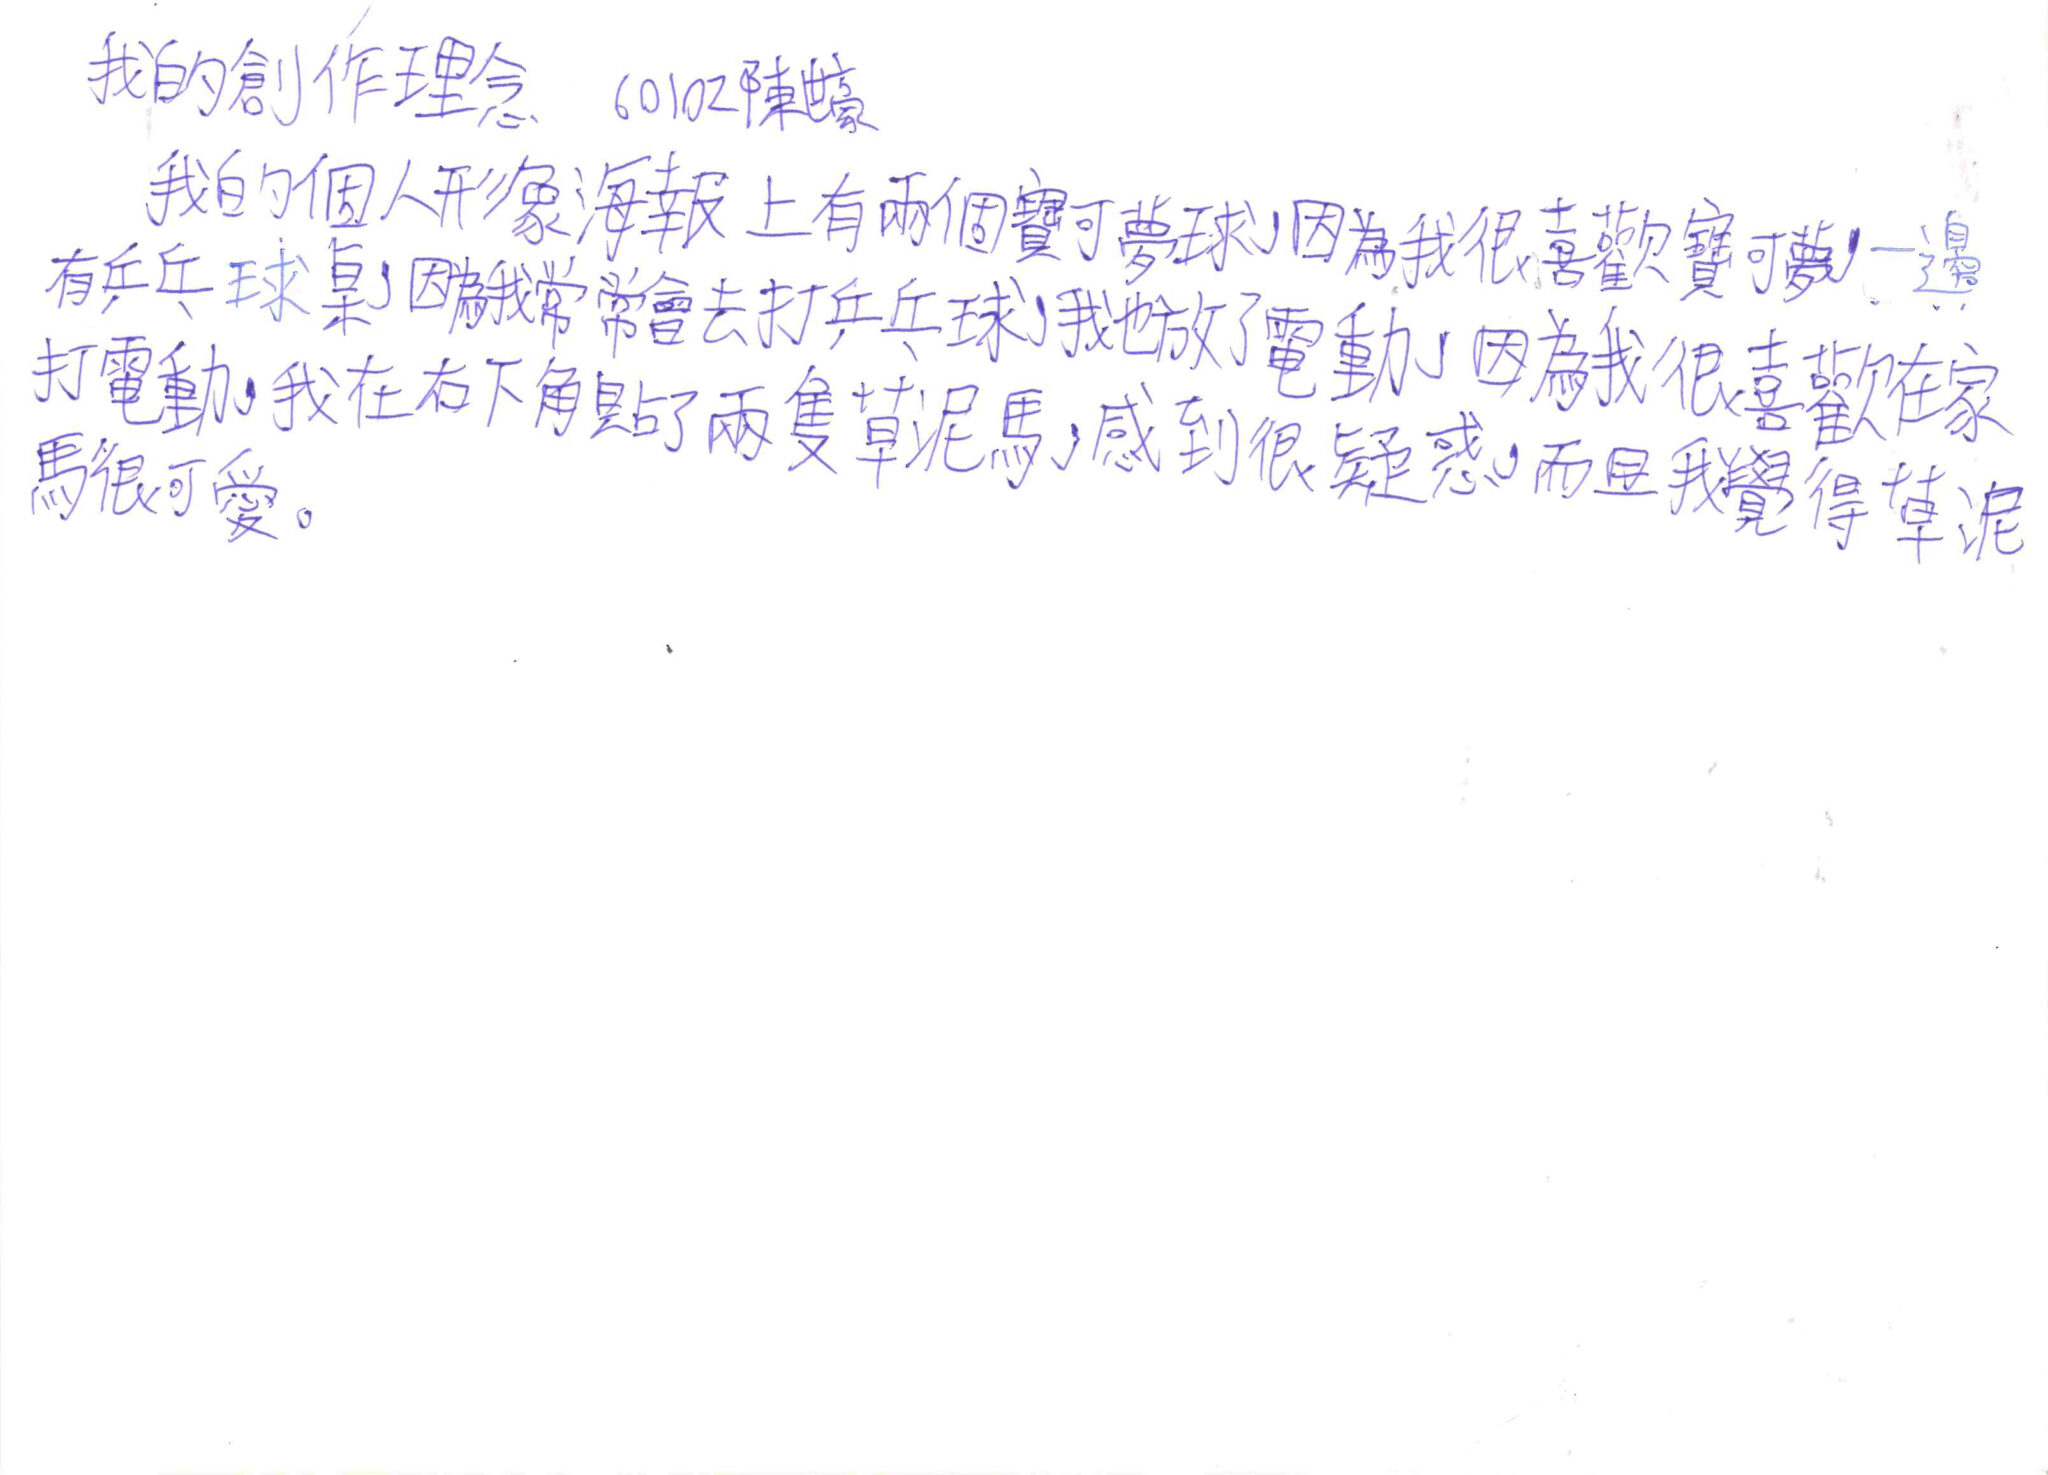 我的創作理念 60102陳世豪
我的個人形象海報上有兩個寶可夢球，因為我很喜歡寶可夢，一邊
有乒乓球桌，因為我常常會去打乒乓球，我也放了電動，因為我很喜歡在家
打電動，我在右下角貼了兩隻草泥馬，感到很疑惑，而且我覺得草泥
馬很可愛。